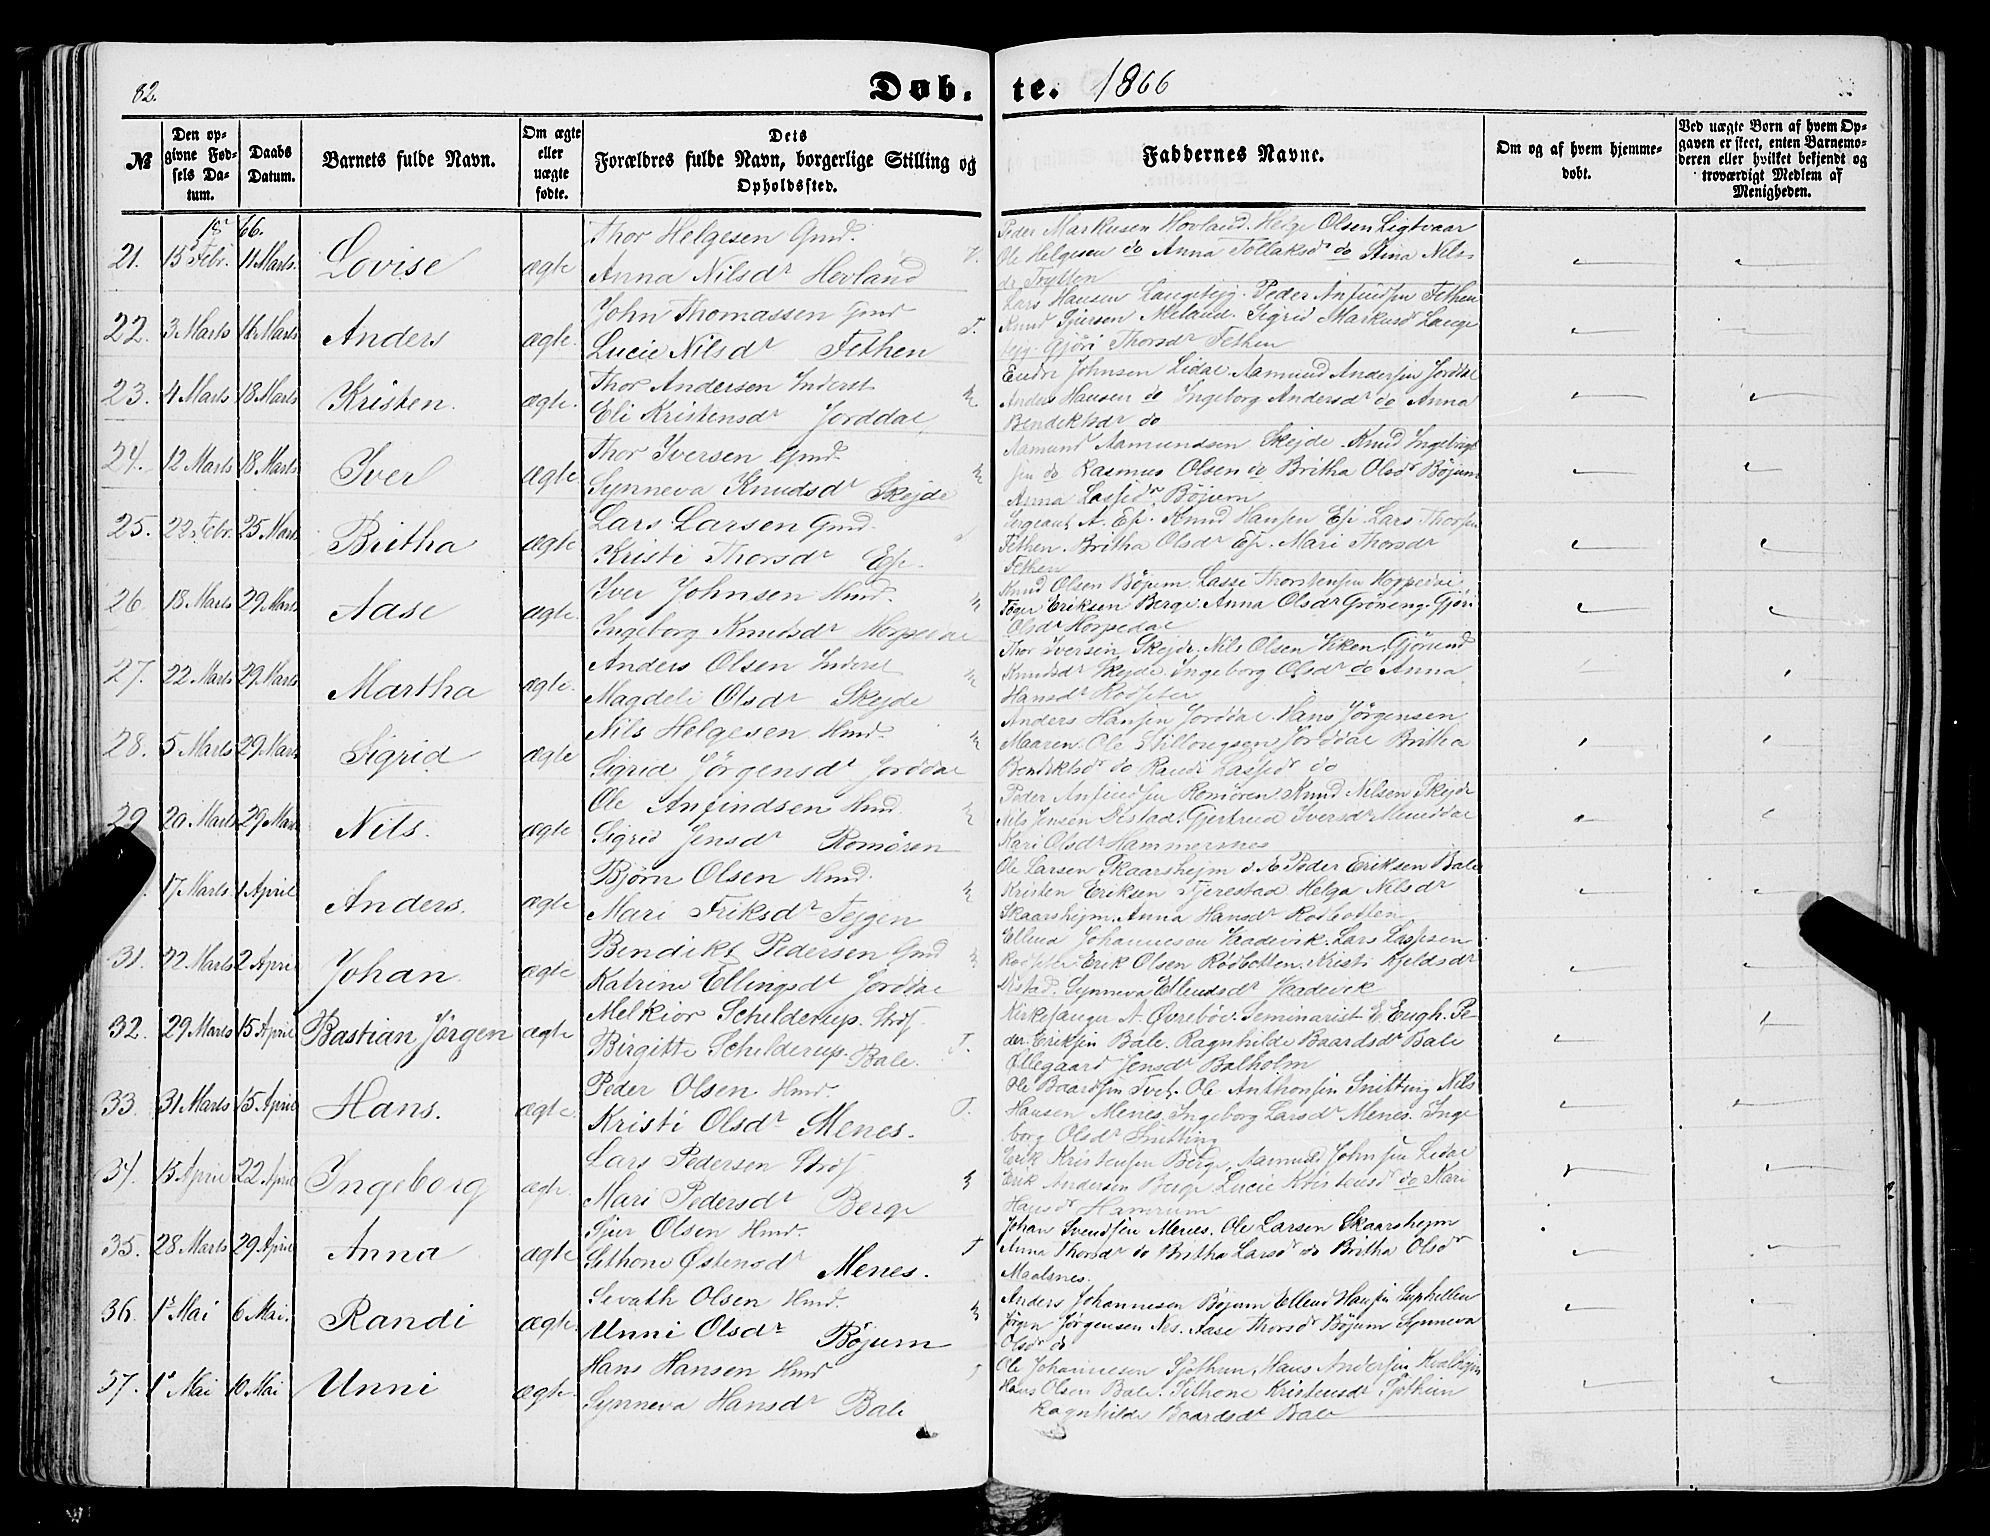 82.
Døb-
te. 1866
№
Den op-
givne Fød-
sels Da-
tum.
Daabs
Datum.
Barnets fulde Navn.
Om ægte
eller
uægte
fødte.
Dets
Forældres fulde Navn, borgerlige Stilling og
Opholdssted.
Faddernes Navne.
Om og af hvem hjemme-
døbt.
Ved uægte Børn af hvem Op-
gaven er skeet, enten Barnemo-
deren eller hvilket bekjendt og
troværdigt Medlem af
Menigheden.
1866.
21. 15 Febr. 11 Marts. Lovise ægte
Thor Helgesen Gmd.
Anna Nilsdr Hovland
Peder Markusen Hovland. Helge Olsen Ligtvaar
Ole Helgesen do Anna Tollaksdr do Stina Nils-
dr Frytten
22. 3 Marts 16 Marts Anders ægte.
John Thomassen Gmd
Lucie Nilsdr Fethen
Lars Hansen Langetejg. Peder Anfindsen Fethen
Knud Sjursen Meland. Sigrid Markusdr Lange
tejg. Gjöri Thorsdr Fethen
23. 4 Marts 18 Marts Kristen. ægte.
Thor Andersen Inderst
Eli Kristensdr Jorddal
Endre Johnsen Lidal. Aamund Andersen Jorddal
Anders Hansen do Ingeborg Andersdr do Anna
Bendiktsdr do
24. 12 Marts 18 Marts Iver ægte
Thor Iversen Gmd.
Synneva Knudsdr Skejde
Aamund Aamundsen Skejde. Knud Ingebrigt
sen do Rasmus Olsen do Britha Olsdr Böjum
Anna Lassedr Böjum
25. 22 Febr. 25 Marts Britha ægte
Lars Larsen Gmd.
Kristi Thorsdr Ese.
Sergeant A. Ese. Knud Hansen Ese. Lars Thorsen
Fethen. Britha Olsdr Ese. Mari Thorsdr
Fethen
26. 18 Marts 29 Marts Aase ægte.
Iver Johnsen Hmd.
Ingeborg Knudsdr Horpedal
Knud Olsen Böjum. Lasse Thorstensen Horpedal
Toger Eriksen Berge. Anna Olsdr Gröneng. Gjöri
Olsdr Horpedal
27. 22 Marts 29 Marts Martha ægte.
Anders Olsen Inderst
Magdeli Olsdr Skejde
Thor Iversen Skejde. Nils Olsen Viken. Gjörend
Knudsdr Skejde. Ingeborg Olsdr do Anna
Hansdr Rodseter
28. 5 Marts 29 Marts Sigrid ægte
Nils Helgesen Hmd.
Sigrid Jörgensdr Jorddal
Anders Hansen Jorddal. Hans Jörgensen
Maaren. Ole Jorddal Britha
Bendiktsdr do Randi Lassedr do
29 20 Marts 29 Marts Nils. ægte
Ole Anfindsen Hmd.
Sigrid Jensdr Romören
Peder Anfindsen Romören. Knud Nilsen Skejde
Nils Jensen Distad. Gjertrud Iversdr Munddal
Kari Olsdr Hammersnes
17 Marts 1 April Anders. ægte
Björn Olsen Hmd.
Mari Eriksdr Tejgen
Ole Larsen Skaarshejm d. Æ. Peder Eriksen Bale
Kristen Eriksen Tjerestad Helga Nilsdr
Skaarshejm. Anna Hansdr Rodbotten
31. 22 Marts 2 April Johan. ægte
Bendikt Pedersen Gmd
Katrine Ellingsdr Jorddal
Ellend Johannesen Vaadevik. Lars Lassesen
Rodseter Erik Olsen Rödbotten. Kristi Kjeldsdr
Distad. Synneva Ellendsdr Vaadevik
32. 29 Marts 15 April Bastian Jörgen ægte
Melkior Schilderup. Strds.
Birgitte Schilderup. Bale.
Kirkesanger A Øvrebö. Seminarist E. Eugh. Pe-
der Eriksen Bale. Ragnhilde Baardsdr Bale
Ollegaard Jensdr Balholm
33. 31 Marts 15 April Hans. ægte.
Peder Olsen Hmd.
Kristi Olsdr Menes.
Ole Baardsen Tvet. Ole Anthonsen Snitting Nils
Hansen Menes. Ingeborg Larsdr Menes. Inge
borg Olsdr Snitting
34. 15 April 22 April Ingeborg ægte.
Lars Pedersen Strds
Mari Pedersdr Berge
Erik Kristensen Berge, Aamund Johnsen Lidal
Erik Andersen Berge Lucie Kristensdr do Kari
Hansdr Hamrum
35. 28 Marts 29 April Anna ægte
Sjur Olsen Hmd.
Sithone Østensdr Menes.
Johan Svendsen Menes. Ole Larsen Skaarshejm
Anna Thorsdr do Britha Larsdr do Britha Olsdr
Maalsnes.
36. 1 Mai 6 Mai. Randi ægte.
Sevath Olsen Hmd.
Unni Olsdr Böjum
Anders Johannesen Böjum Ellend Hansen Suphellen
Jörgen Jörgensen Nes. Aase Thorsdr Böjum Synneva
Olsdr do
37. 1 Mai 10 Mai Unni ægte.
Hans Hansen Hmd
Synneva Hansdr Bale
Ole Johannesen Sjöthun, Hans Andersen
Hans Olsen Bale. Sithone Kristensdr Sjöthun
Ragnhilde Baardsdr Bale